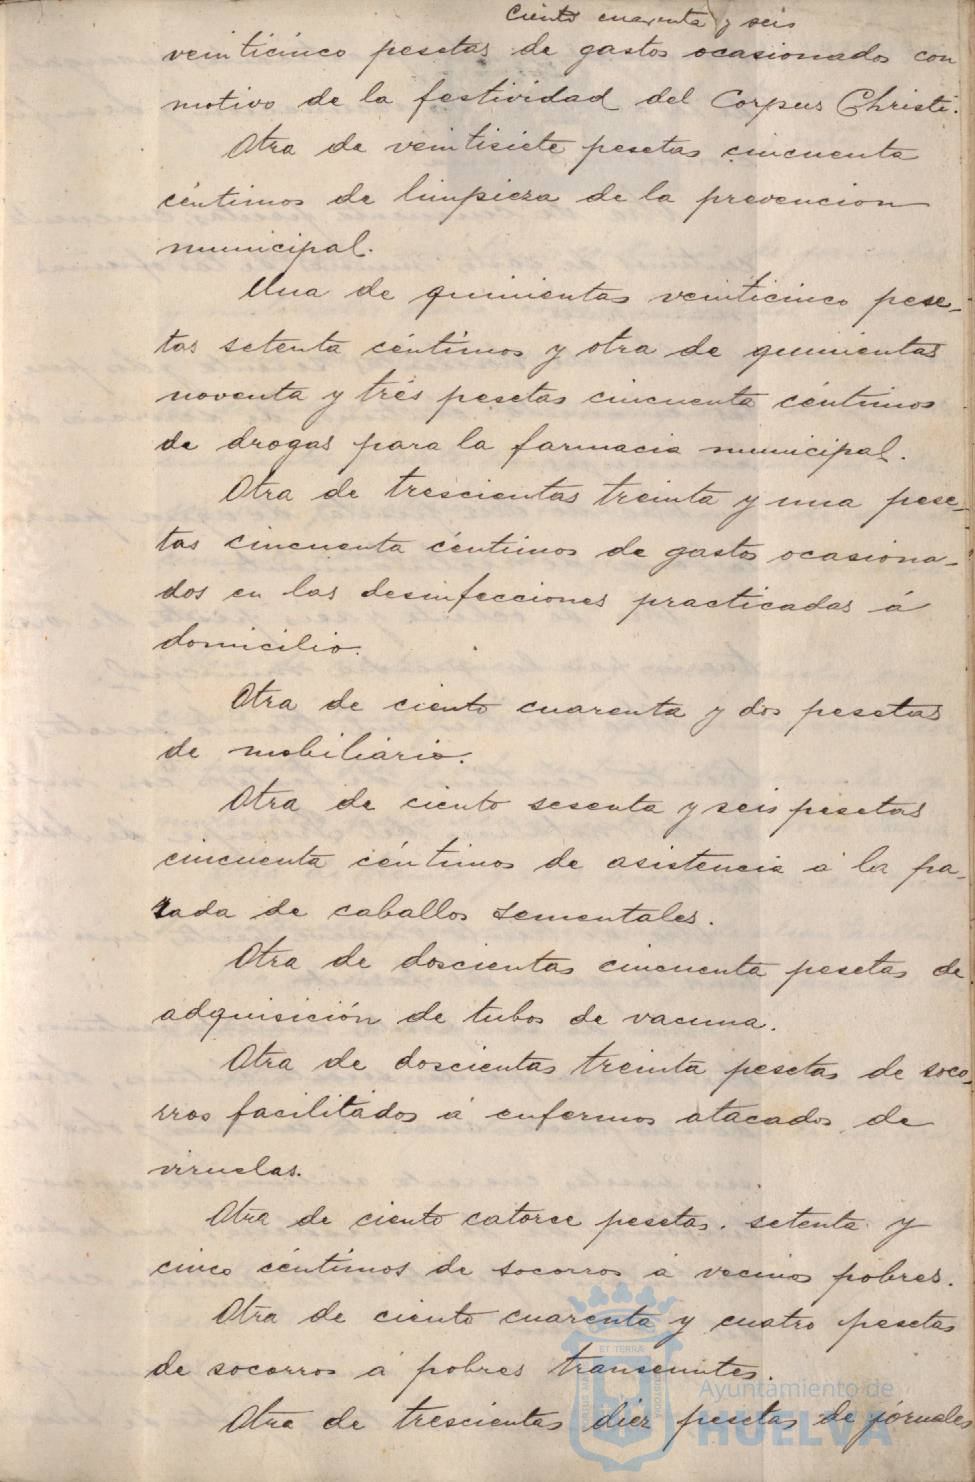 Ciento cuarenta y seis
veinticinco pesetas de gastos ocasionados con
motivo de la festividad del Corpus Christi.
Otra de veintisiete pesetas cincuenta
céntimos de limpieza de la prevencion
municipal.
Una de quinientas veinticinco pese-
tas setenta céntimos y otra de quinientas
noventa y trés pesetas cincuenta céntimos
de drogas para la farmacia municipal.
Otra de trescientas treinta y una pese-
tas cincuenta céntimos de gastos ocasiona-
dos en las desinfecciones practicadas á
domicilio.
Otra de ciento cuarenta y dos pesetas
de mobiliario.
Otra de ciento sesenta y seis pesetas
cincuenta céntimos de asistencia á la pa-
rada de caballos sementales.
Otra de doscientas cincuenta pesetas de
adquisición de tubos de vacuna.
Otra de doscientas treinta pesetas de soco-
rros facilitados á enfermos atacados de
viruelas.
Otra de ciento catorce pesetas setenta y
cinco céntimos de socorros á vecinos pobres.
Otra de ciento cuarenta y cuatro pesetas
de socorros á pobres transeuntes.
Otra de trescientas diez pesetas de jornales
ET TERRÆ
Ayuntamiento de
HUELVA